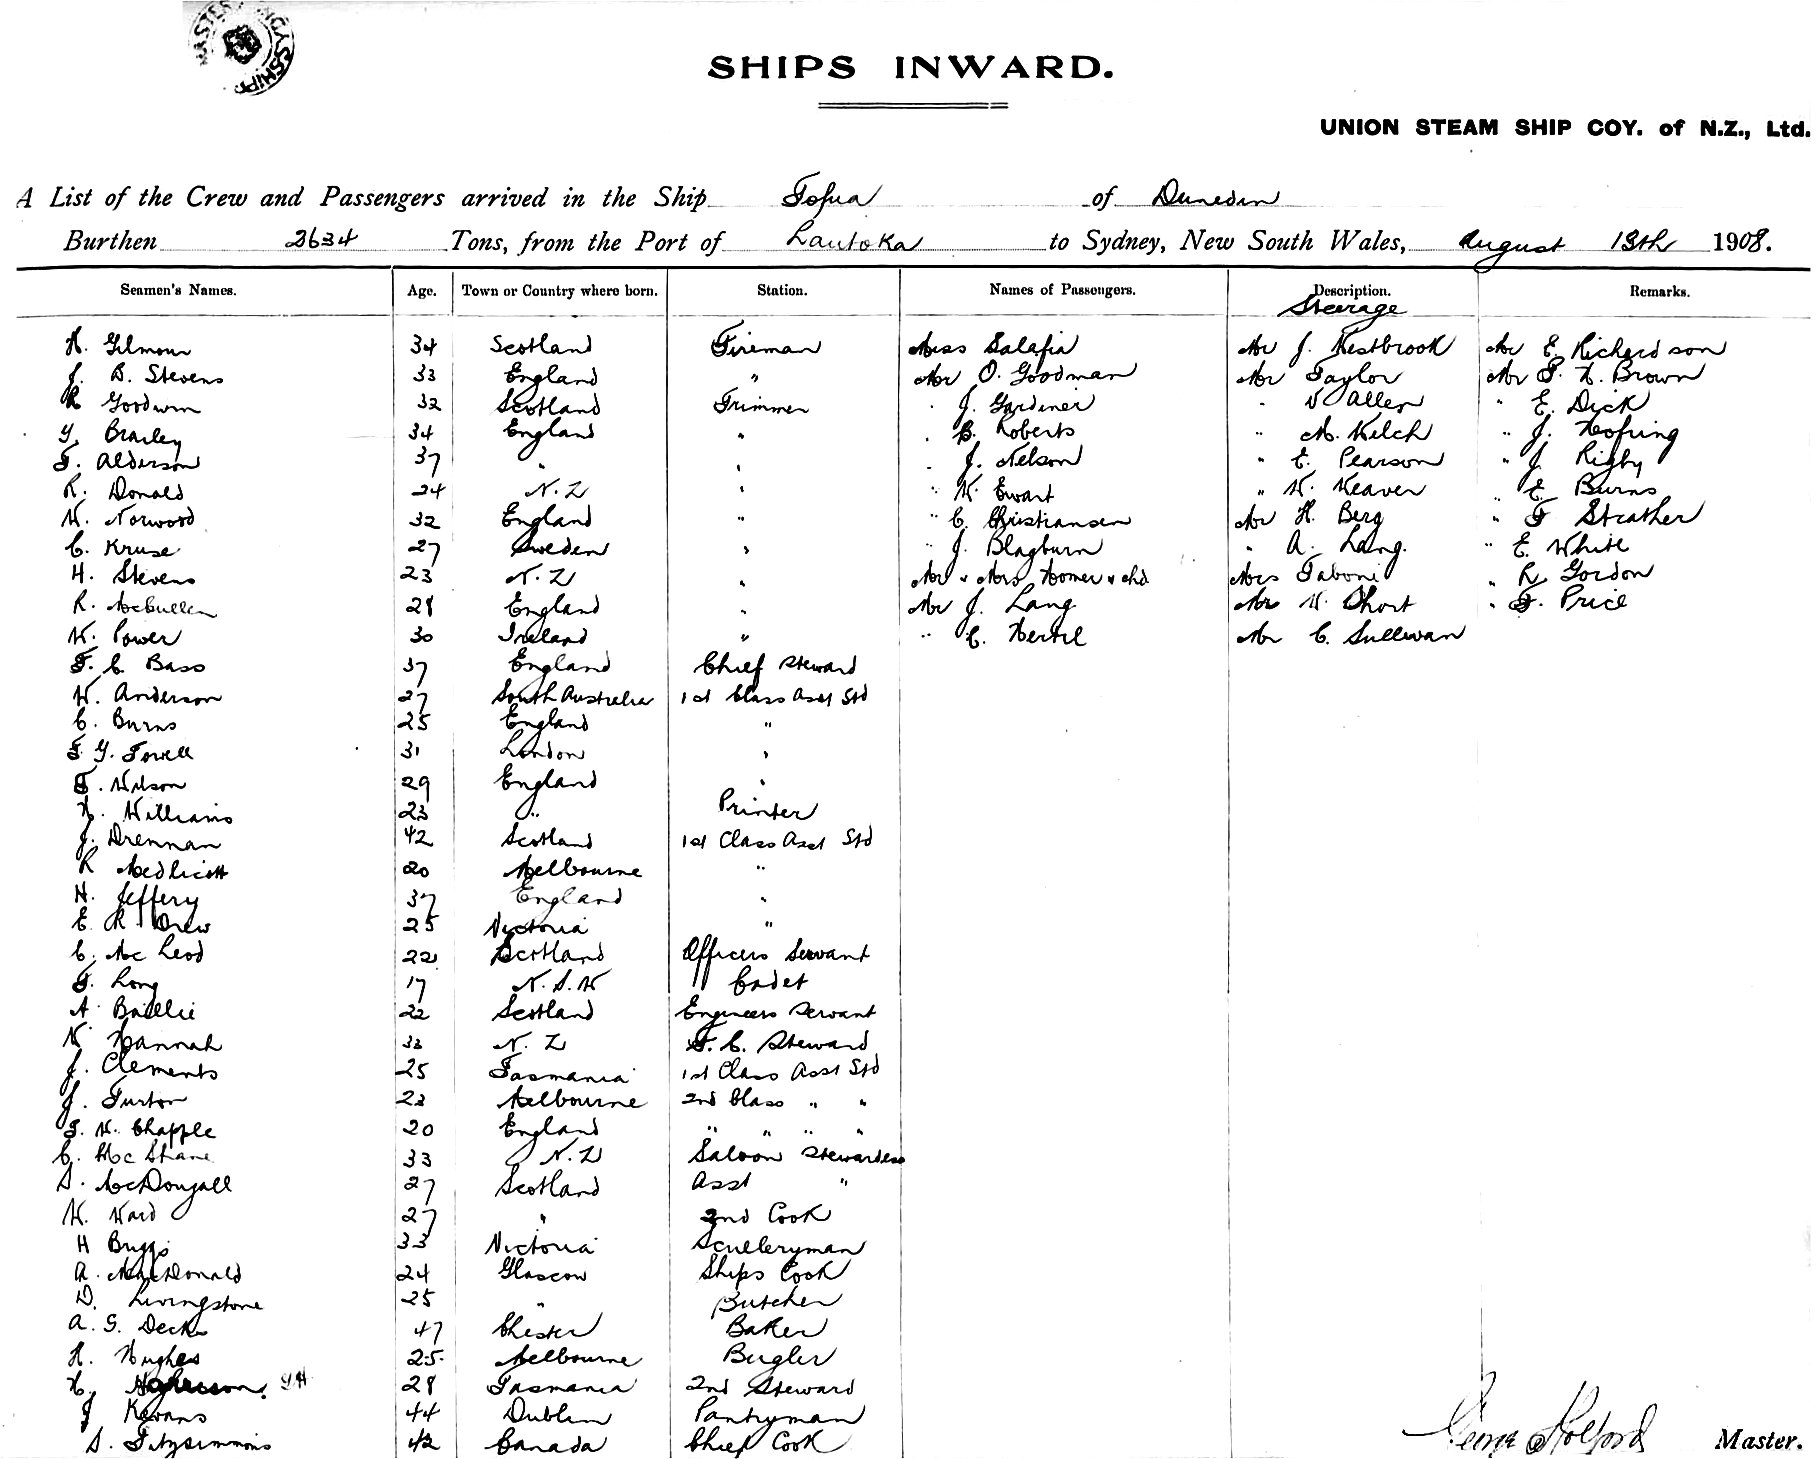 SHIPS INWARD.
UNION STEAM SHIP COY. of N.Z., Ltd.
A List of the Crew and Passengers arrived in the Ship Tofua of Dunedin
Burthen 2634 Tons, from the Port of Lautoka to Sydney, New South Wales, August 13th 1908.
Seamen's Names. Age. Town or Country where born. Station. Names of Passengers. Description. Remarks.
Steerage
H. Gilmour 34 Scotland Fireman Miss Salafia Mr J. Westbrook Mr E. Richardson
J. B. Stevens 33 England " Mr O. Goodman Mr Taylor Mr F. H. Brown
R Goodwin 32 Scotland Trimmer " J. Gardiner " V Allen " E. Dick
G. Brailey 34 England " " B. Roberts " M. Welch " J. Hofring
F. Alderson 37 " " " J. Nelson " E. Pearson " J Rigby
R. Donald 24 N. Z " " W Ewart " W. Weaver " E Burns
W. Norwood 32 England " " C. Christiansen Mr H. Berg " F Strather
C. Kruse 27 Sweden " " J. Blagburn " A. Lang. " E. White
H. Stevens 23 N. Z " Mr & Mrs Homer & chd Mrs Taboni " R Gordon
R. McCullen 28 England " Mr J. Lang Mr W. Short " F. Price
W. Power 30 Ireland " " C. Hertel Mr C. Sullivan
F. C. Bass 37 England Chief Steward
W. Anderson 27 South Australia 1st Class Asst Std
C. Burns 25 England "
F G. Towell 31 London "
F. Wilson 29 England "
H. Williams 23 " Printer
J. Drennan 42 Scotland 1st Class Asst Std
R Medlicott 20 Melbourne "
H. Jeffery 37 England "
E. R Drew 25 Victoria "
C. Mc Leod 22 Scotland Officers Servant
F. Long 17 N. S. W Cadet
A Baillie 22 Scotland Engineers Servant
W Hannah 33 N. Z F. C. Steward
J. Clements 25 Tasmania 1st Class Asst Std
J. Turton 23 Melbourne 2nd Class " "
F. W. Chapple 20 England " " " "
C. Mc Shane 33 N. Z Saloon Stewardess
S. McDougall 27 Scotland Asst "
W. Ward 27 " 2nd Cook
H Briggs 33 Victoria Sculleryman
A. MacDonald 24 Glascow Ships Cook
D. Livingstone 25 " Butcher
A. G. Decks 47 Chester Baker
H. Hughes 25. Melbourne Bugler
H. 28 Tasmania 2nd Steward
J Kevans 44 Dublin Pantryman
S. Fitzsimmons 42 Canada Chief Cook
George Holford Master.